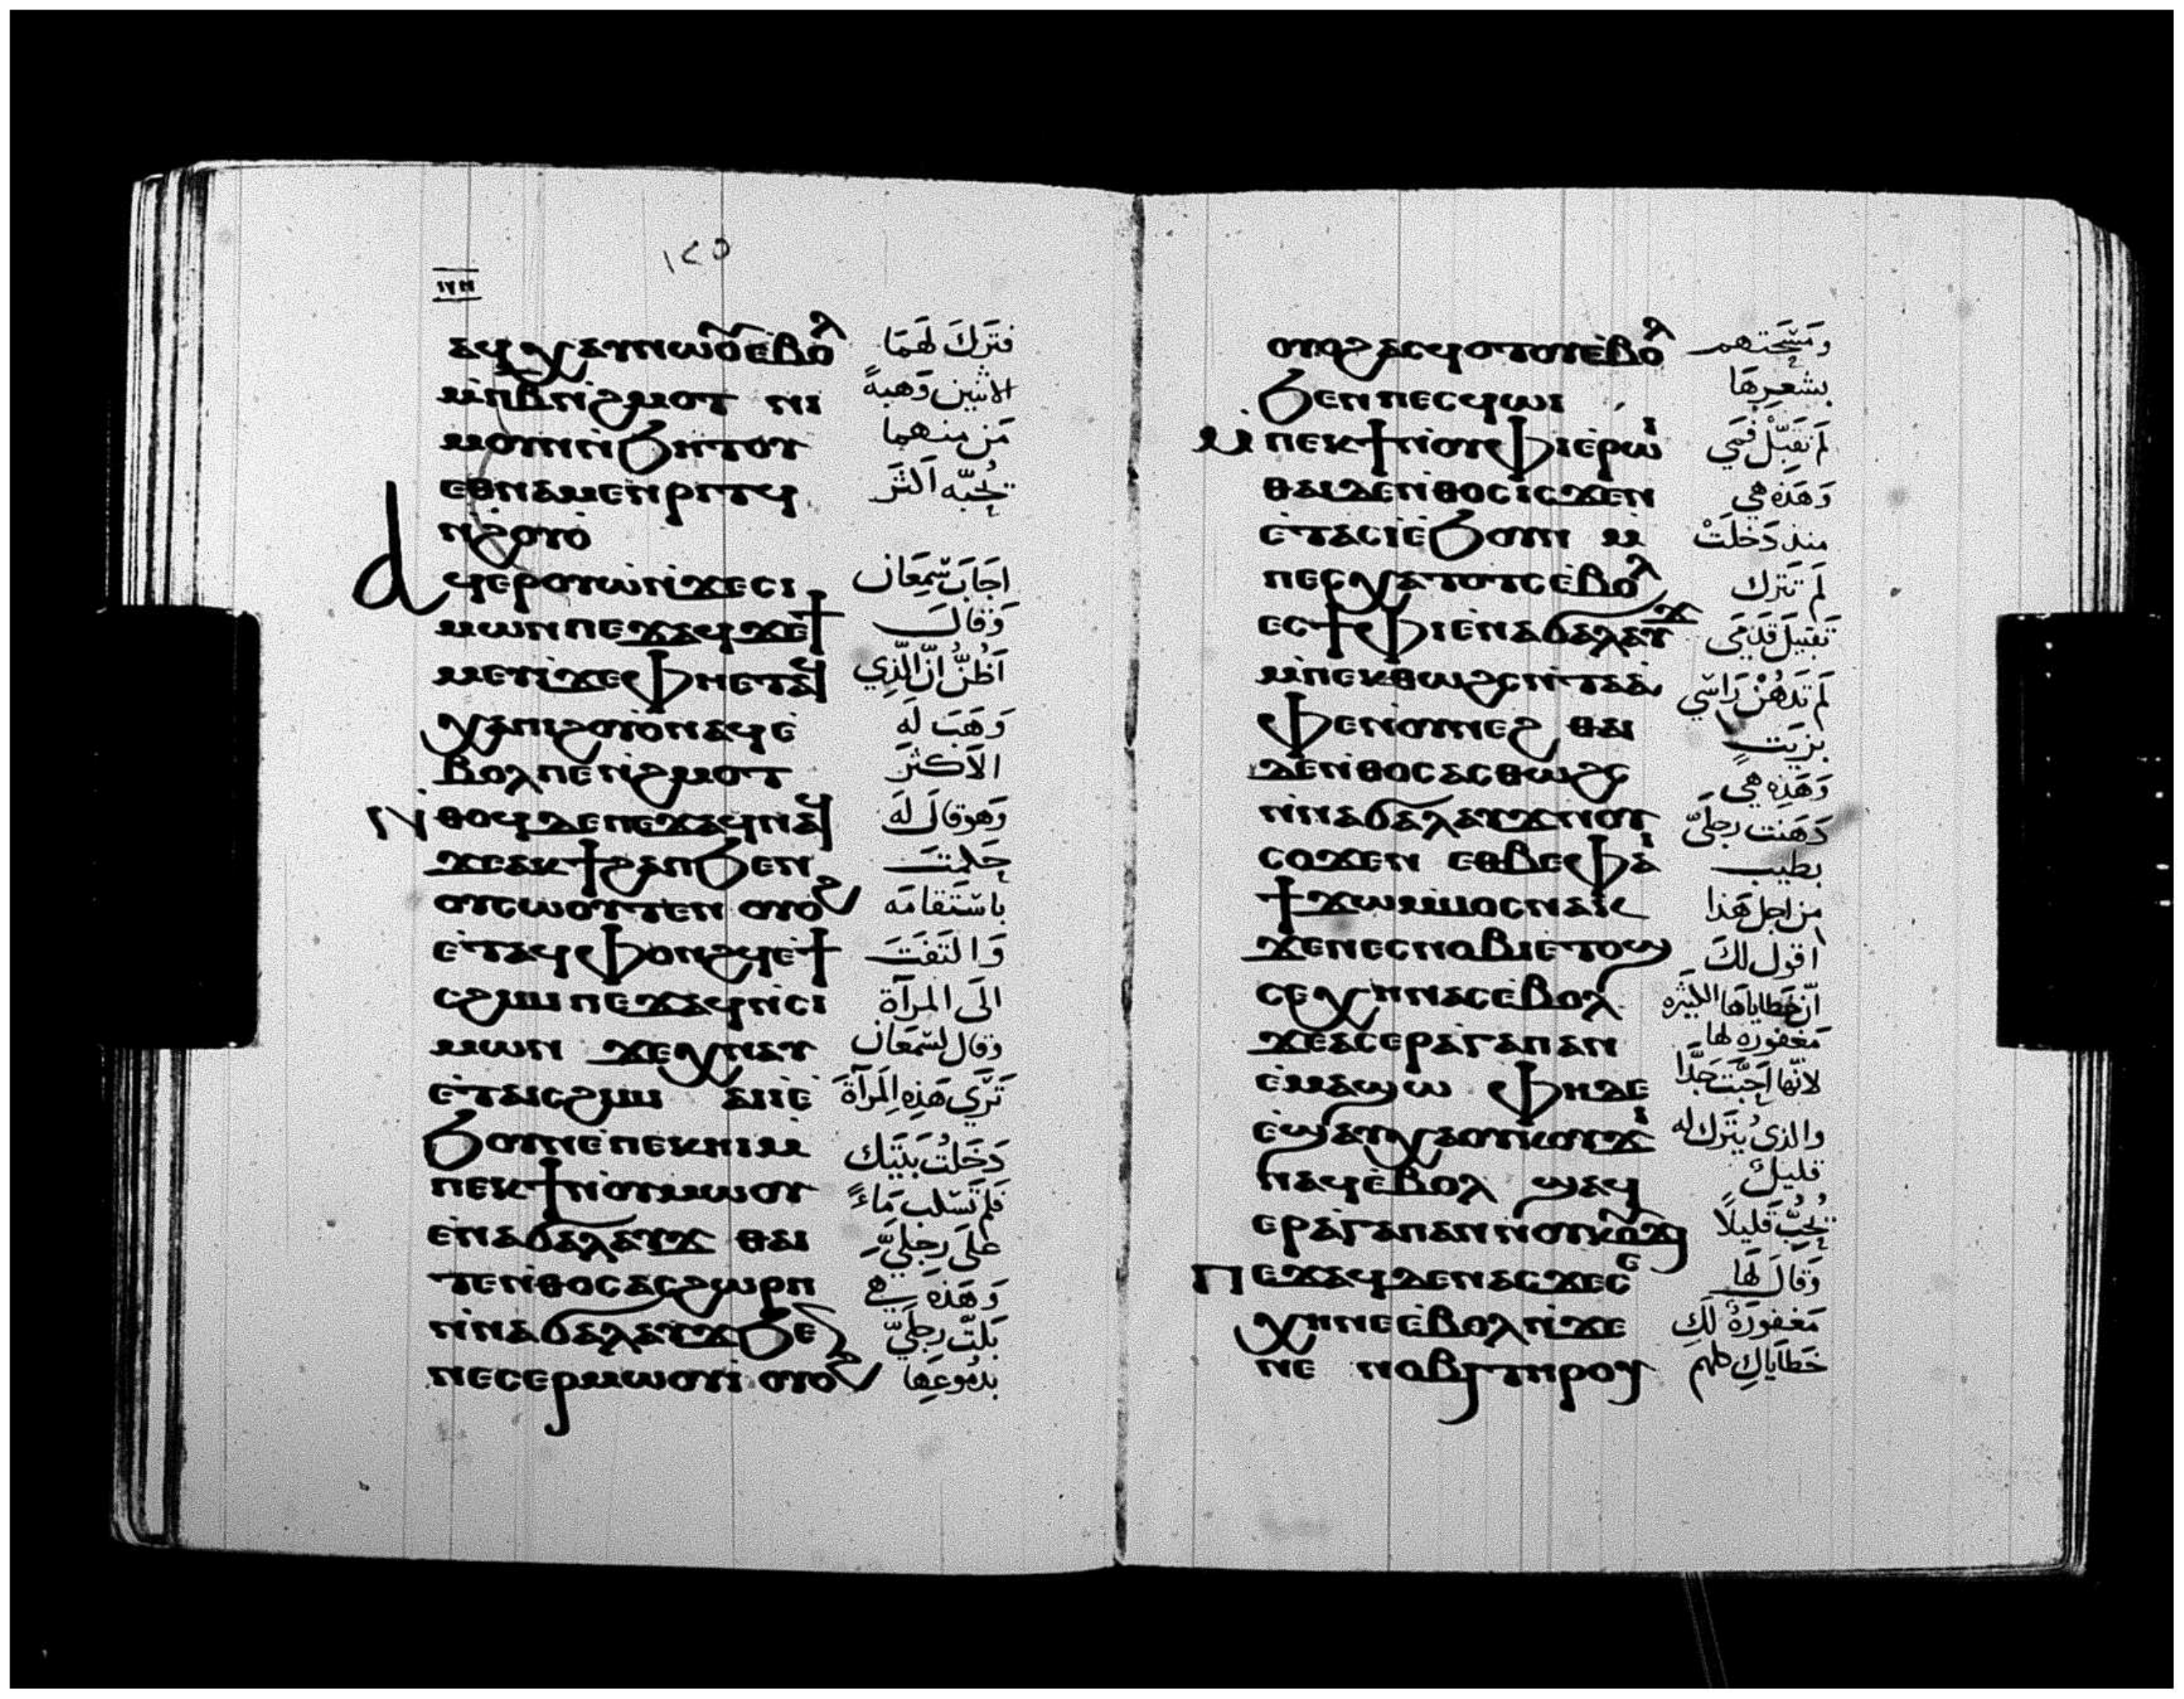 ١٢٥
ⲁϥⲭⲁⲩⲛⲱⲟⲩⲉⲃⲟⲗ فَتَرَكَ لَهُمَا
ⲙⲡⲃⲛϩⲙⲟⲧ ⲛⲓ الاثنين وَهبةً
ⲙⲟⲩⲛⲛϧⲏⲧⲟⲩ مَن منهما
ⲉⲑⲛⲁⲙⲉⲛⲣⲓⲧϥ يُحبّه اَكثَر
ⲛϩⲟⲩⲟ
ⲁϥⲉⲣⲟⲩⲱⲛϫⲉⲥⲓ اجَابَ سّمعَان
ⲙⲱⲛⲡⲉϫⲁϥϫⲉϯ وَقَالَ
ⲙⲉⲩⲓϫⲉⲫⲏⲉⲧⲁϥ اَظُنُّ انّ الّذِي
ⲭⲁⲡⲓϩⲟⲩⲟⲛⲁϥⲉ وَهَبَ لَه
ⲃⲟⲗⲡⲉⲛϩⲙⲟⲧ الاَكثَرَ
ⲛⲑⲟϥⲇⲉⲡⲉϫⲁϥⲛⲁϥ وَهوقالَ لَهَ
ϫⲉⲁⲕϯϩⲁⲡϧⲉⲛ حَكمتَ
ⲟⲩⲥⲱⲟⲩⲧⲉⲛ ⲟⲩⲟϩ باسْتَقامَه
ⲉⲧⲁϥⲫⲟⲛϩϥⲉϯ وَالتَفَتَ
ⲥϩⲓⲙⲓⲡⲉϫⲁϥⲛⲥⲓ الَى المرآة
ⲙⲱⲛ ϫⲉⲭⲛⲁⲩ وَقال لسّمعَان
ⲉⲧⲁⲓⲥϩⲓⲙⲓ ⲁⲓⲓⲉ تَرَي هَذِه المَرآةَ
ϧⲟⲩⲛⲉⲡⲉⲕⲏⲓⲙ دَخَلتُ بَيتَك
ⲡⲉⲕϯⲛⲟⲩⲙⲱⲟⲩ فَلم تَسْكب مَاءً
ⲉⲛⲁϭⲁⲗⲁⲩϫ ⲑⲁⲓ عَلَى رِجلَيَّ
ⲧⲉⲛⲑⲟⲥⲁⲥϩⲱⲣⲡ وَهَذِه هي
ⲛⲛⲁϭⲁⲗⲁⲩϫϧⲉⲛ بَلتّ رِجلَيَّ
ⲛⲉⲥⲉⲣⲙⲱⲟⲩⲓ ⲟⲩⲟϩ بدمُوعِهَا
ⲟⲩⲟϩⲁⲥϥⲟⲧⲟⲩⲉⲃⲟⲗ وَمَسَّحَتهم
ϧⲉⲛⲡⲉⲥϥⲱⲓ بشعرِهَا
ⲙⲡⲉⲕϯⲛⲟⲩⲫⲓⲉⲣⲱⲓ لَم تقَبّلْ فَمِي
ⲑⲁⲓⲇⲉⲛⲑⲟⲥⲓⲥϫⲉⲛ وَهَذِه هي
ⲉⲧⲁⲥⲓⲉϧⲟⲩⲛ ⲙ منذ دَخلَتْ
ⲡⲉⲥⲭⲁⲧⲟⲧⲥⲉⲃⲟⲗ لَم تَترك
ⲉⲥϯⲫⲓⲉⲛⲁϭⲁⲗⲁⲩϫ تَقبيلَ قَدَمَي
ⲙⲡⲉⲕⲑⲱϩⲥⲛⲧⲁⲁ لَم تَدهُنْ رَاسّي
ⲫⲉⲛⲟⲩⲛⲉϩ ⲑⲁⲓ بزَيتٍ
ⲇⲉⲛⲑⲟⲥⲁⲥⲑⲱϩⲥ وَهَذِه هي
ⲛⲛⲁϭⲁⲗⲁⲩϫⲛⲟⲩ دَهَنت رجلَيَّ
ⲥⲟϫⲉⲛ ⲉⲑⲃⲉⲫⲁⲓ بطيب
ϯϫⲱⲙⲙⲟⲥⲛⲁⲕ من اجل هَذا
ϫⲉⲛⲉⲥⲛⲟⲃⲓⲉⲧⲟϣ اقول لكَ
ⲥⲉⲭⲏⲛⲁⲥⲉⲃⲟⲗ اَنّ خَطاياهَا الكثيره
ϫⲉⲁⲥⲉⲣⲁⲅⲁⲡⲁⲛ مَغفوره لها
ⲉⲙⲁϣⲱ ⲫⲏⲇⲉ لانّها احَبَّت جَدًّا
ⲉϣⲁⲩⲭⲁⲟⲩⲕⲟⲩϫⲓ وَالذي يُتَرك له
ⲛⲁϥⲉⲃⲟⲗ ϣⲁϥ قليلٌ
ⲉⲣⲁⲅⲁⲡⲁⲛⲛⲟⲩⲕⲟⲩϫⲓ يُحبُّ قَليلاً
ⲡⲉϫⲁϥⲇⲉⲛⲁⲥϫⲉⲥⲉ وَقالَ لهَا
ⲭⲏⲛⲉⲉⲃⲟⲗⲛϫⲉ مَغفورَةٌ لكِ
ⲛⲉ ⲛⲟⲃⲓⲧⲏⲣⲟⲩ خَطَايَاكِ كلهم